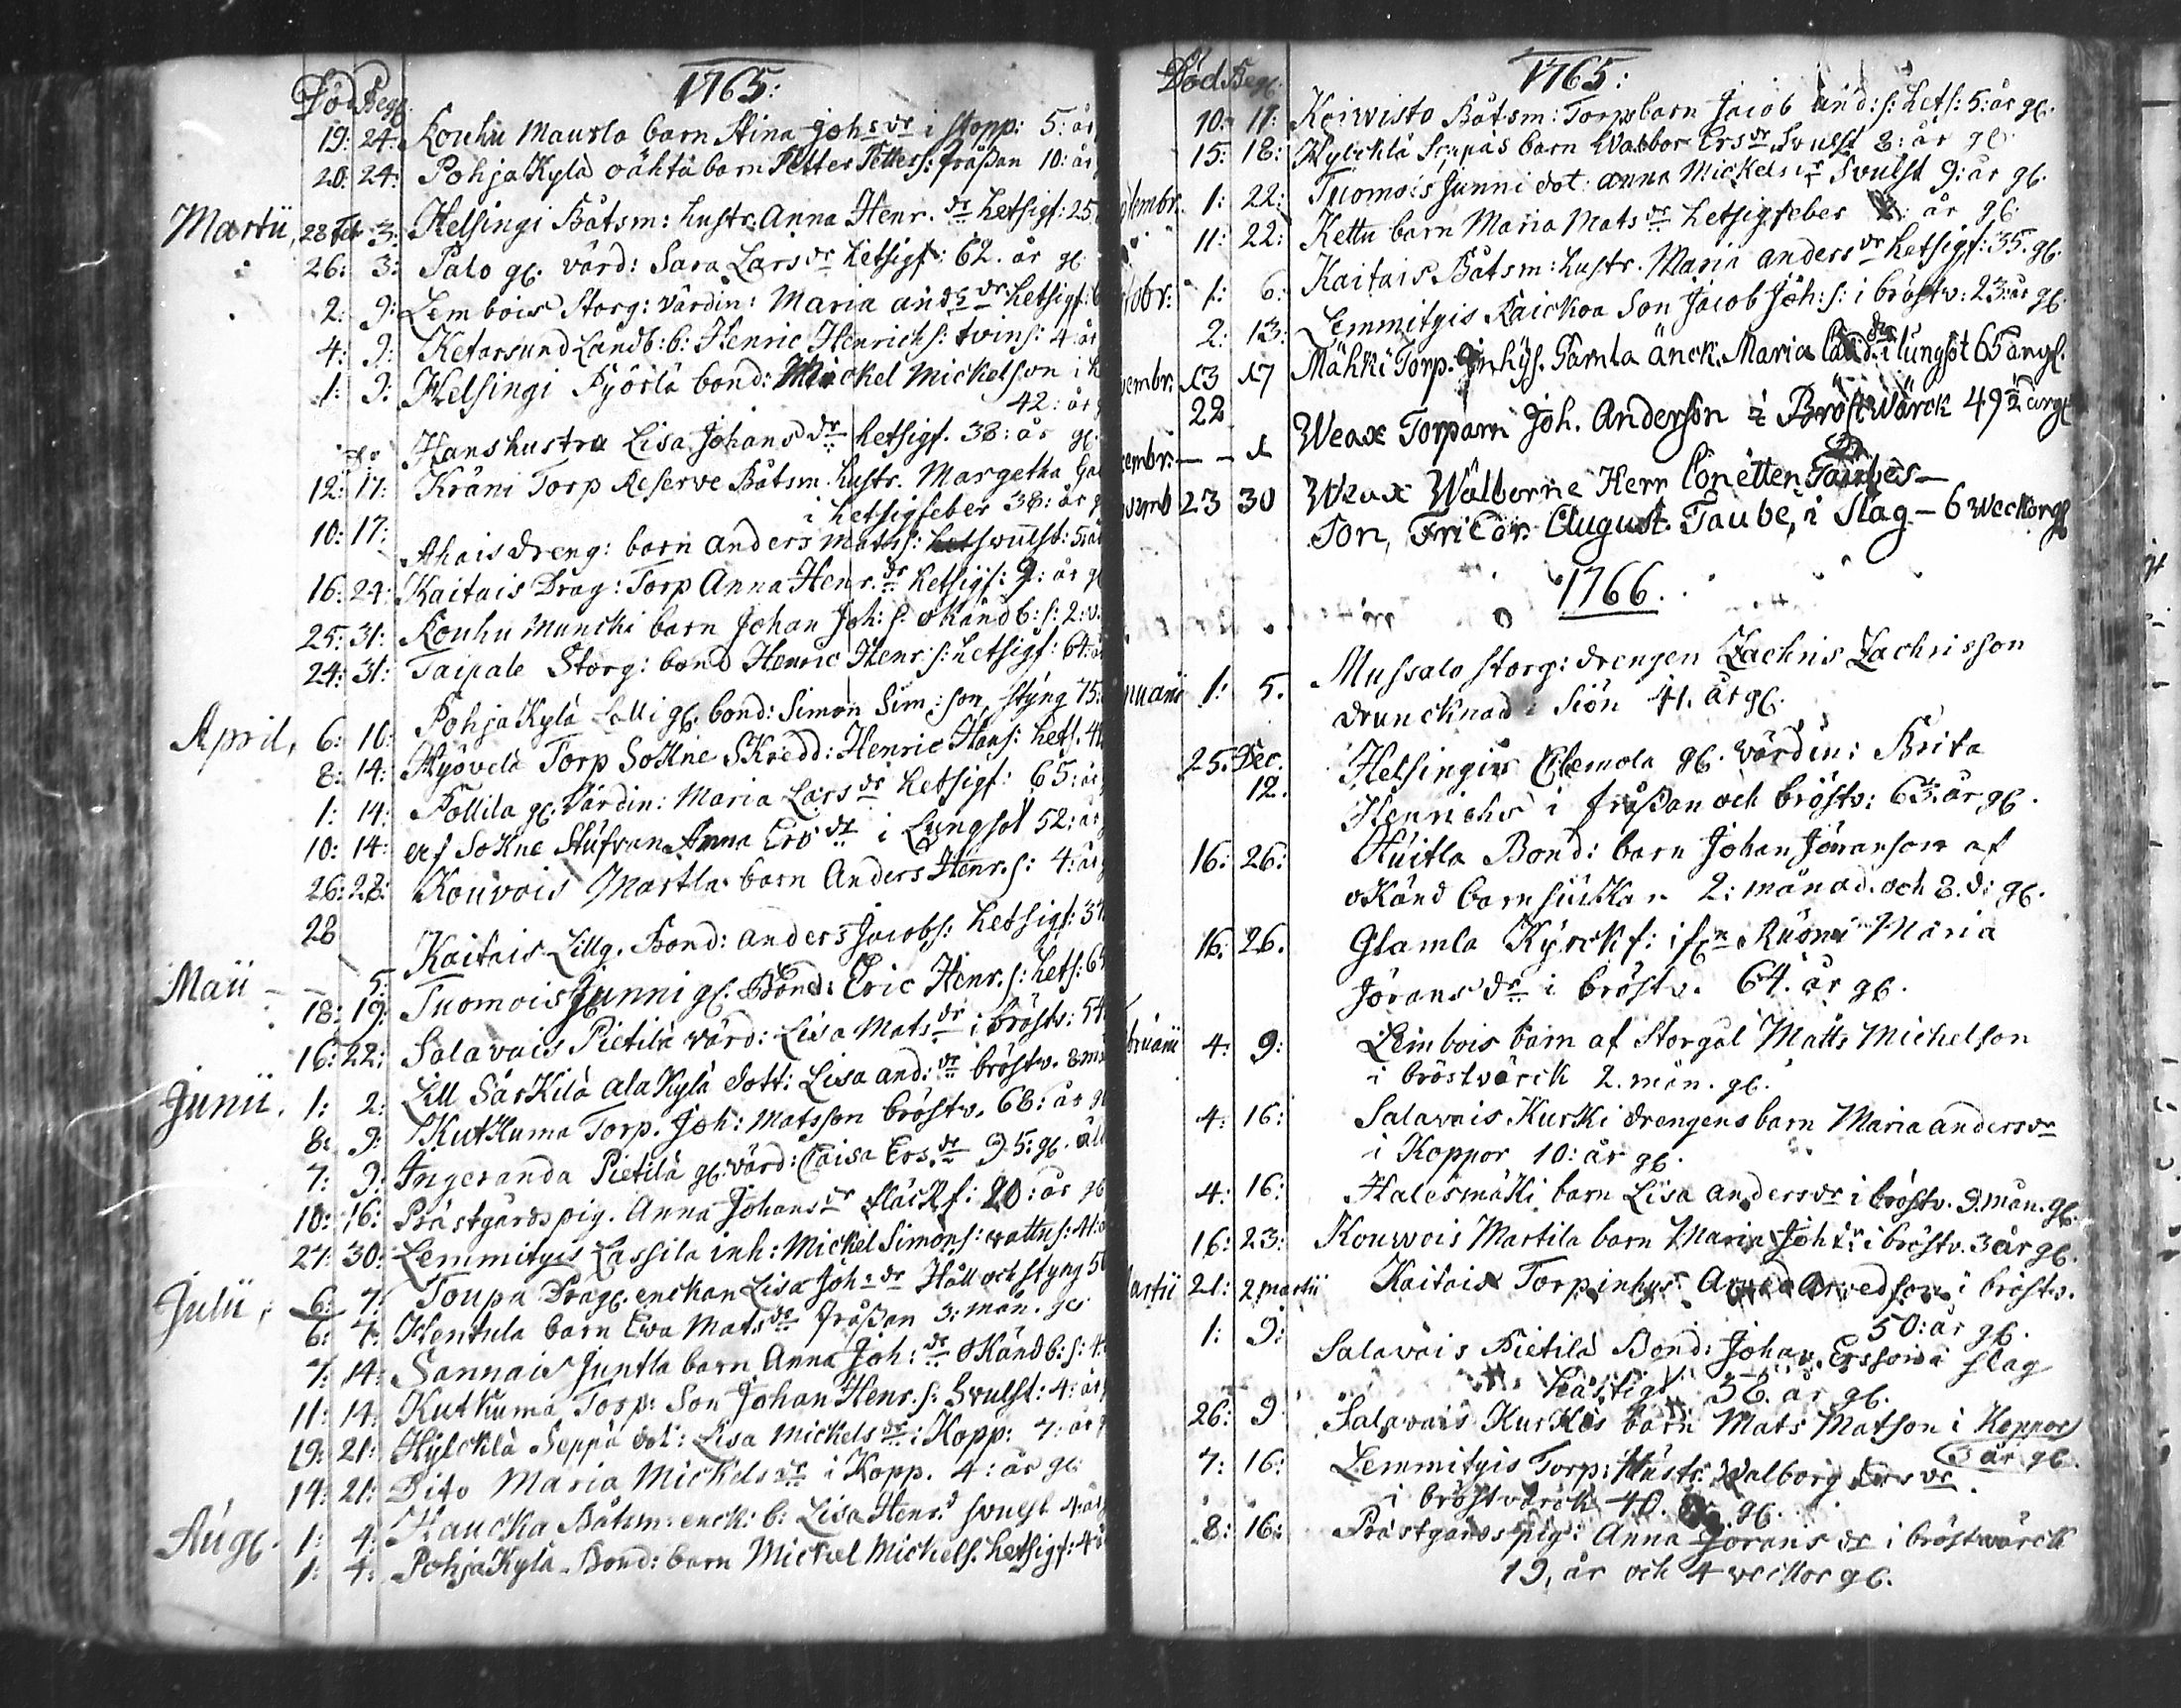 Död Begr. 1765:
19: 24: Kouhu Maurla barn Stina Johs dr i Kopp: 5: år
20: 24: PohjaKylä oähtä barn Petter Petters: fråßan 10: år
Martii, 28 Feb 3: Helsingi Båtsm: hustr: Anna Henr. dr hetsigf: 25
26: 3: Palo gl. värd: Sara Lars dr hetsigf: 62. år gl.
2: 9: Lembois Storg: värdin: Maria and: dr hetsigf:
4: 9: Ketarsund Landb: b: Henric Henrichs: tvins: 4: år
1: 9: Helsingi Pyörlä bond: Mickel Mickelson i h
42: år
do Hans hustru Lisa Johans dr hetsigf. 38: år gl.
12: 17: Kräni Torp Reserve Båtsm. hustr. Margetha
i hetsigfeber 38: år
10: 17: Ahais dreng: barn anders mats: swullst: 5: år
16: 24: Kaitais Drag: Torp Anna Henr. dr hetsigf: 9: år gl
25: 31: Kouhu Muncki barn Johan Joh: s: okänd b: s: 2: v.
24: 31: Taipale Storg: bond Henric Henr: s: hetsigf: 64: år
April, 6: 10: PohjaKylä Lalli gl. bond: Simon Sim: son, styng 75:
8: 14: Hyövelä Torp Sokne Skredd: Henric Hans: hets. 4
1: 14: Pollila gl. värdin: Maria Lars dr hetsigf: 65: år
10: 14: af Sokne Stufvan Anna Ers dr i Lungsot 52: år
26: 28: Kouvois Martla barn Anders Henr. s: 4: år
28 Kaitais Lillg. Bond: anders Jacobs: hetsigf: 37
Maii - - 5: Tuomois Junni gl. Bond: Eric Henr. s: hets: 6
18: 19:
16: 22: Salavais Pietilä värd: Lisa Mats dr i bröstv: 54
Junii. 1: 2: Lill Särkilä alaKylä dott: Lisa and: dr bröstv. 8 må
8: 9: Kutkuma Torp. Joh: Matsson bröstv. 68: år gl
7: 9: Ingeranda Pietilä gl. värd: Caisa Ers. dr 95: gl. åld
10: 16: Prästgårds pig. Anna Johans dr fläckf: 20: år gl
27: 30: Lemmityis Lassila inh: Mickel Simons: vattus: 41:
Julii, 6: 7: Toupa Drag. enckan Lisa Joh: dr Håll och styng 5
6: 7: Hentula barn Ewa Mats dr fråßan 3: mån. gl
7: 14: Sannais Juntla barn Anna Joh: dr okänd b: s: 4:
11: 14: Kutkuma Torp: Son Johan Henr. s: Svulst: 4: år
19: 21: Hylcklä Seppä dot: Lisa Mickels dr: i Kopp: 7: år
14: 21: Dito Maria Mickels dr i Kopp. 4: år gl
Augl. 1: 4: Haucka Båtsm: enck: b: Lisa Henr: d svulst 4: år
1: 4: PohjaKylä Bond: barn Mickel Mickels. hetsigf: 4 å
Död Begr. 1765:
10: 11: Koiwisto Båtsm: Torps barn Jacob And: s: hets: 5: år gl.
15: 18: Hylcklä Sepäs barn Walbor Ers dr Svulst 8: år gl.
tembr. 1: 22: Tuomois Junni dot: anna Mickels dr Svulst 9: år gl.
11: 22: Kettu barn Maria Mats dr hetsigfeber år gl.
tobr: 1: 6: Kaitais Båtsm: hustr. Maria anders dr hetsigf: 35. gl.
2: 13: Lemmityis Kaickoa Son Jacob Joh: s: i bröstv: 23: år gl.
vembr: 13 17 Mähki Torp. Inhys. Gamla änck. Maria i lungsot 65 år gl.
22 Weax Torparn Joh. Anderson i Bröstwärck 49 1/2 år gl
cembr: - - 1
vemb 23 30 Weax Wälborne Herr Taubes -
Son, Fridr. August Taube, i Slag - 6 weckor gl
1766.
nuarii 1: 5. Mussalo storg: drengen Zachris Zachrisson
druncknad i Siön 41. år gl.
25. Dec. 12. Helsingis Elemola gl. värdin: Brita
Henrichs i fråßan och bröstv: 63: år gl.
16: 26: Huitla Bond: barn Johan Jöranson af
okänd barnsiukan 2: månad. och 8. d: gl.
16: 26. Glamla Kyrckf: i Ruona Maria
Jörans dr i bröstv. 64. år gl.
bruarii 4: 9: Leimbois barn af Storgål Matts Michelson
i bröstvärck 2. mån. gl.
4: 16: Salavais Kurki drengens barn Maria anders dr
i Koppor 10: år gl.
4: 16: Halesmäki barn Lisa anders dr i bröstv. 9. mån. gl.
16: 23: Kouwois Martila barn Maria Joh: dr i bröstv. 3 år gl.
artii 21: 2 martii Kaitais Torp inhys: Arved Arvedson i bröstv.
50: år gl.
1: 9: Salavais Pietilä Bond: Johan Ersson i slag
hastigt 56. år gl.
26: 9 Salavais Kurkis barn Mats Matson i Koppor
3 år gl.
7: 16: Lemmityis Torp: Hustr. Walborg Ers dr
i bröstvärck 40. år gl.
8: 16: Prästgårds pig: Anna Jörans dr i bröstwärck
19, år och 4 weckor gl.